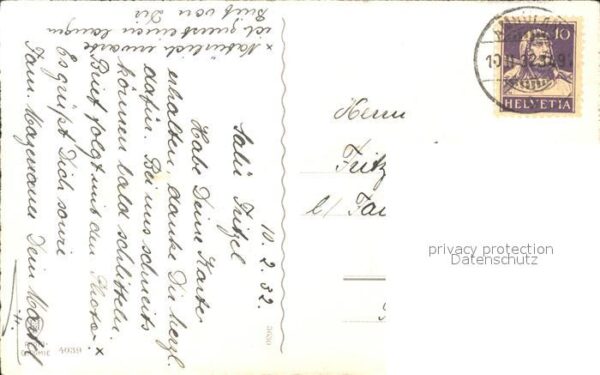 10. 2. 32.
Salü Fritzel
Habe Deine Karte
erhalten, danke Dir herzl.
dafür. Bei uns schneits
können bald schlitteln.
Brief folgt mit den Photos. x
Es grüsst Dich sowie
Fam. Dein
x Natürlich erwarte
ich zuerst einen langen
Brief von Dir
Herrn
Fritz
b/ Fa
10
HELVETIA
4039
privacy protection
Datenschutz